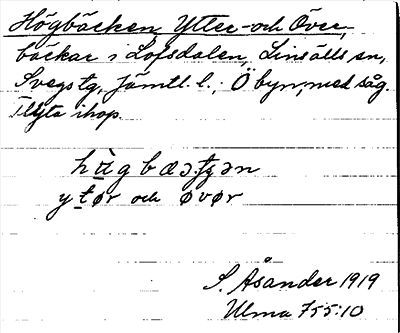 Högbäcken, Ytter- och Över,
bäckar i Lofsdalen, Linsälls sn,
Svegs tg, Jämtl. l.; Ö byn, med såg.
Flyta ihop.
ytør och øvør
S. Åsander 1919
Ulma 755:10